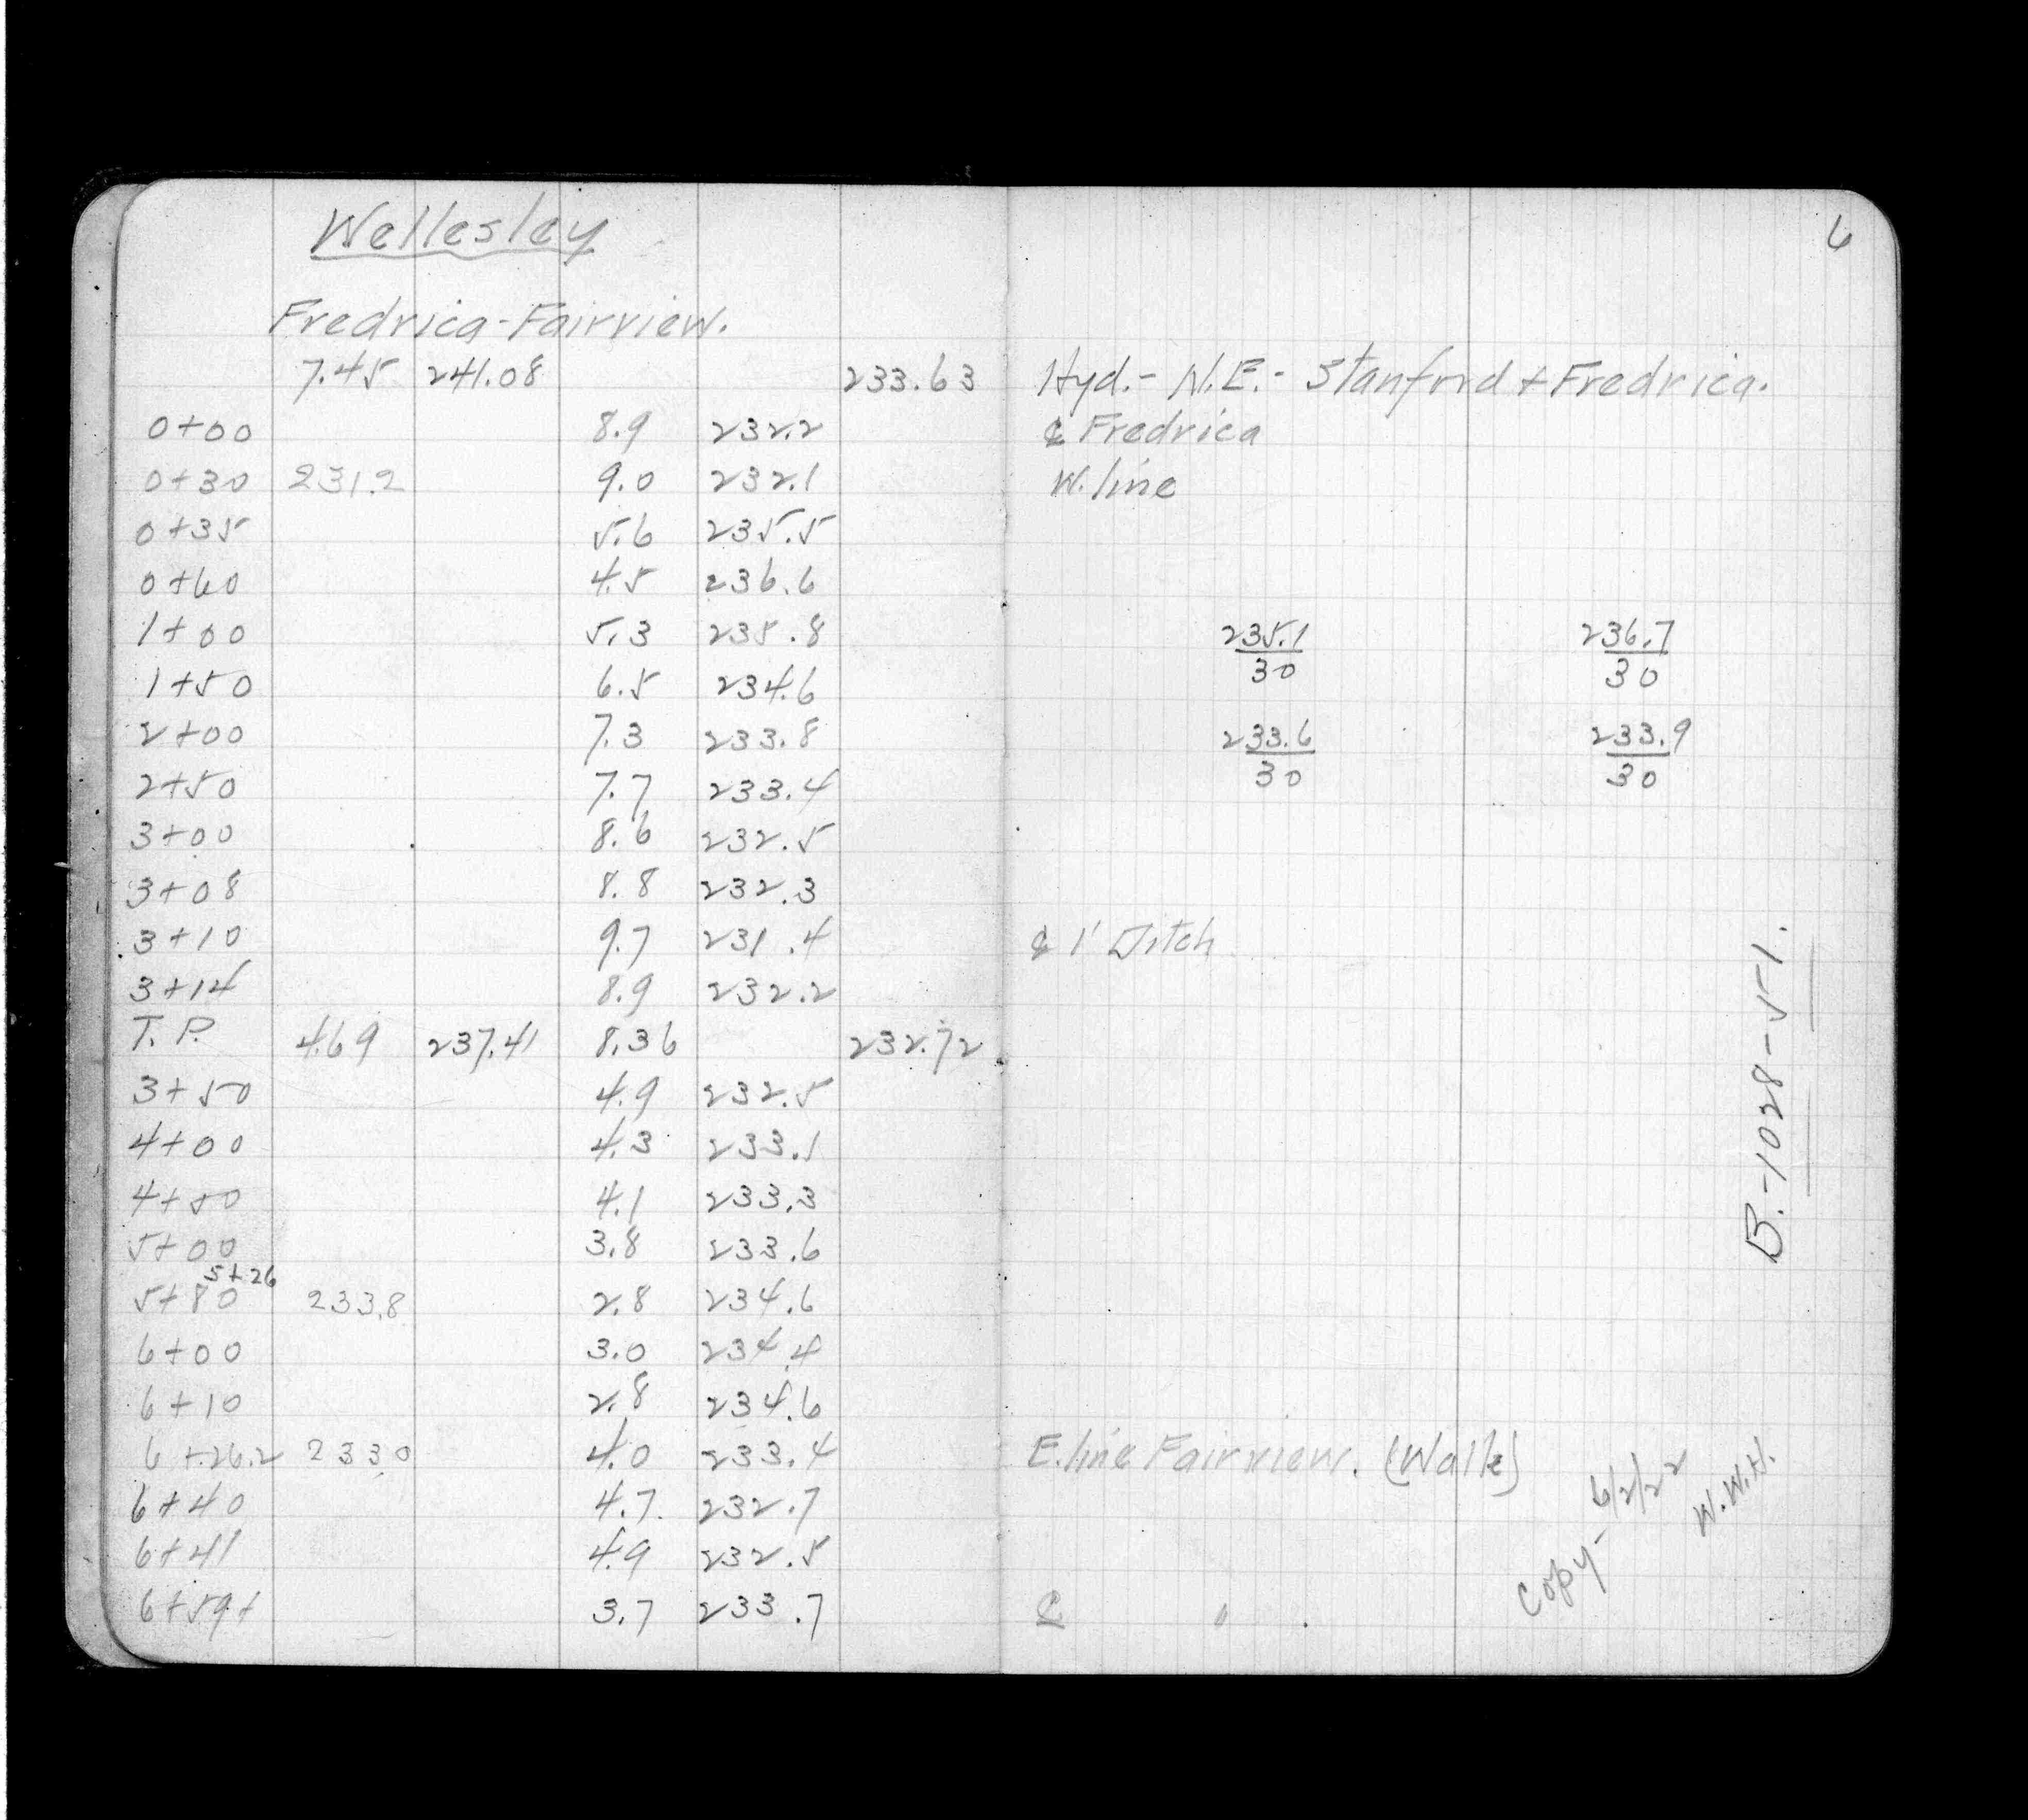 Wellesley
6
Fredrica-Fairview.
7.45 241.08 233.63 Hyd.- N.E.- Stanford + Fredrica.
0+00 8.9 232.2 ℄ Fredrica
0+30 231.2 9.0 232.1 W. line
0+35 5.6 235.5
0+60 4.5 236.6
1+00 5.3 235.8 235.1/30 236.7/30
1+50 6.5 234.6
2+00 7.3 233.8 233.6/30 233.9/30
2+50 7.7 233.4
3+00 8.6 232.5
3+08 8.8 232.3
3+10 9.7 231.4 ℄ 1' Ditch
3+14 8.9 232.2
T.P. 4.69 237.41 8.36 232.72
3+50 4.9 232.5
4+00 4.3 233.1
4+50 4.1 233.3
5+00 3.8 233.6
5+26
5+80 233.8 2.8 234.6
6+00 3.0 234.4
6+10 2.8 234.6
6+26.2 233.0 4.0 233.4 E. line Fairview. (Walk)
6+40 4.7 232.7
6+41 4.9 232.5
6+59+ 3.7 233.7 ℄ "
B.-1028-51.
Copy- 6/2/22
W.W.H.